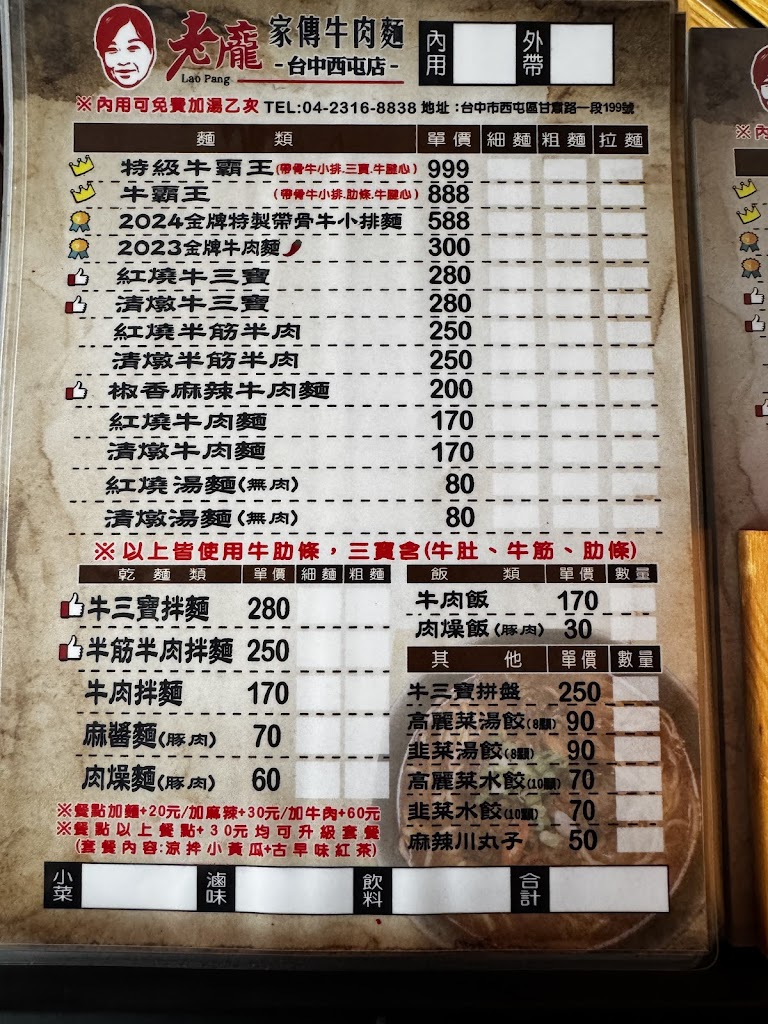 老龐 家傳牛肉麵 內用 外帶
Lao Pang -台中西屯店-
※內用可免費加湯乙次 TEL:04-2316-8838 地址:台中市西屯區甘肅路一段199號
麵類 單價 細麵 粗麵 拉麵
特級牛霸王(帶骨牛小排.三寶.牛腱心) 999
牛霸王(帶骨牛小排.肋條.牛腱心) 888
2024金牌特製帶骨牛小排麵 588
2023金牌牛肉麵 300
紅燒牛三寶 280
清燉牛三寶 280
紅燒半筋半肉 250
清燉半筋半肉 250
椒香麻辣牛肉麵 200
紅燒牛肉麵 170
清燉牛肉麵 170
紅燒湯麵(無肉) 80
清燉湯麵(無肉) 80
※以上皆使用牛肋條，三寶含(牛肚、牛筋、肋條)
乾麵類 單價 細麵 粗麵
牛三寶拌麵 280
半筋半肉拌麵 250
牛肉拌麵 170
麻醬麵(豚肉) 70
肉燥麵(豚肉) 60
※餐點加麵+20元/加麻辣+30元/加牛肉+60元
※餐點以上餐點+30元均可升級套餐
(套餐內容:涼拌小黃瓜+古早味紅茶)
飯類 單價 數量
牛肉飯 170
肉燥飯(豚肉) 30
其他 單價 數量
牛三寶拼盤 250
高麗菜湯餃(8顆) 90
韭菜湯餃(8顆) 90
高麗菜水餃(10顆) 70
韭菜水餃(10顆) 70
麻辣川丸子 50
小菜 滷味 飲料 合計